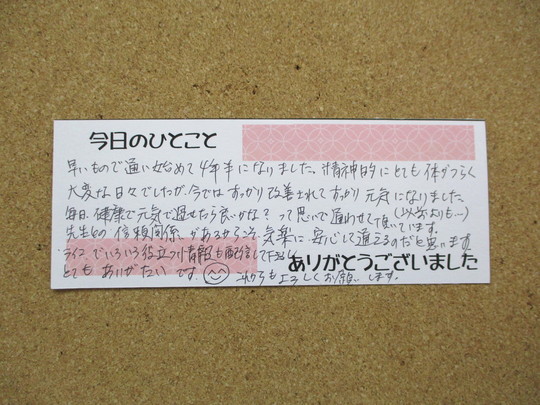 今日のひとこと
早いもので通い始めて4年半になりました。精神的にとても体がつらく
大変な日々でしたが、今ではすっかり改善されてすっかり元気になりました。
毎日、健康で元気で過せたら良いかな?って思いで通わせて頂いています。
(以前よりも…)
先生との信頼関係があるからこそ気楽に安心して通えるのだと思います
ラインでいろいろ役立つ情報も配信して下さり
とてもありがたいです。これからもよろしくお願いします。
ありがとうございました